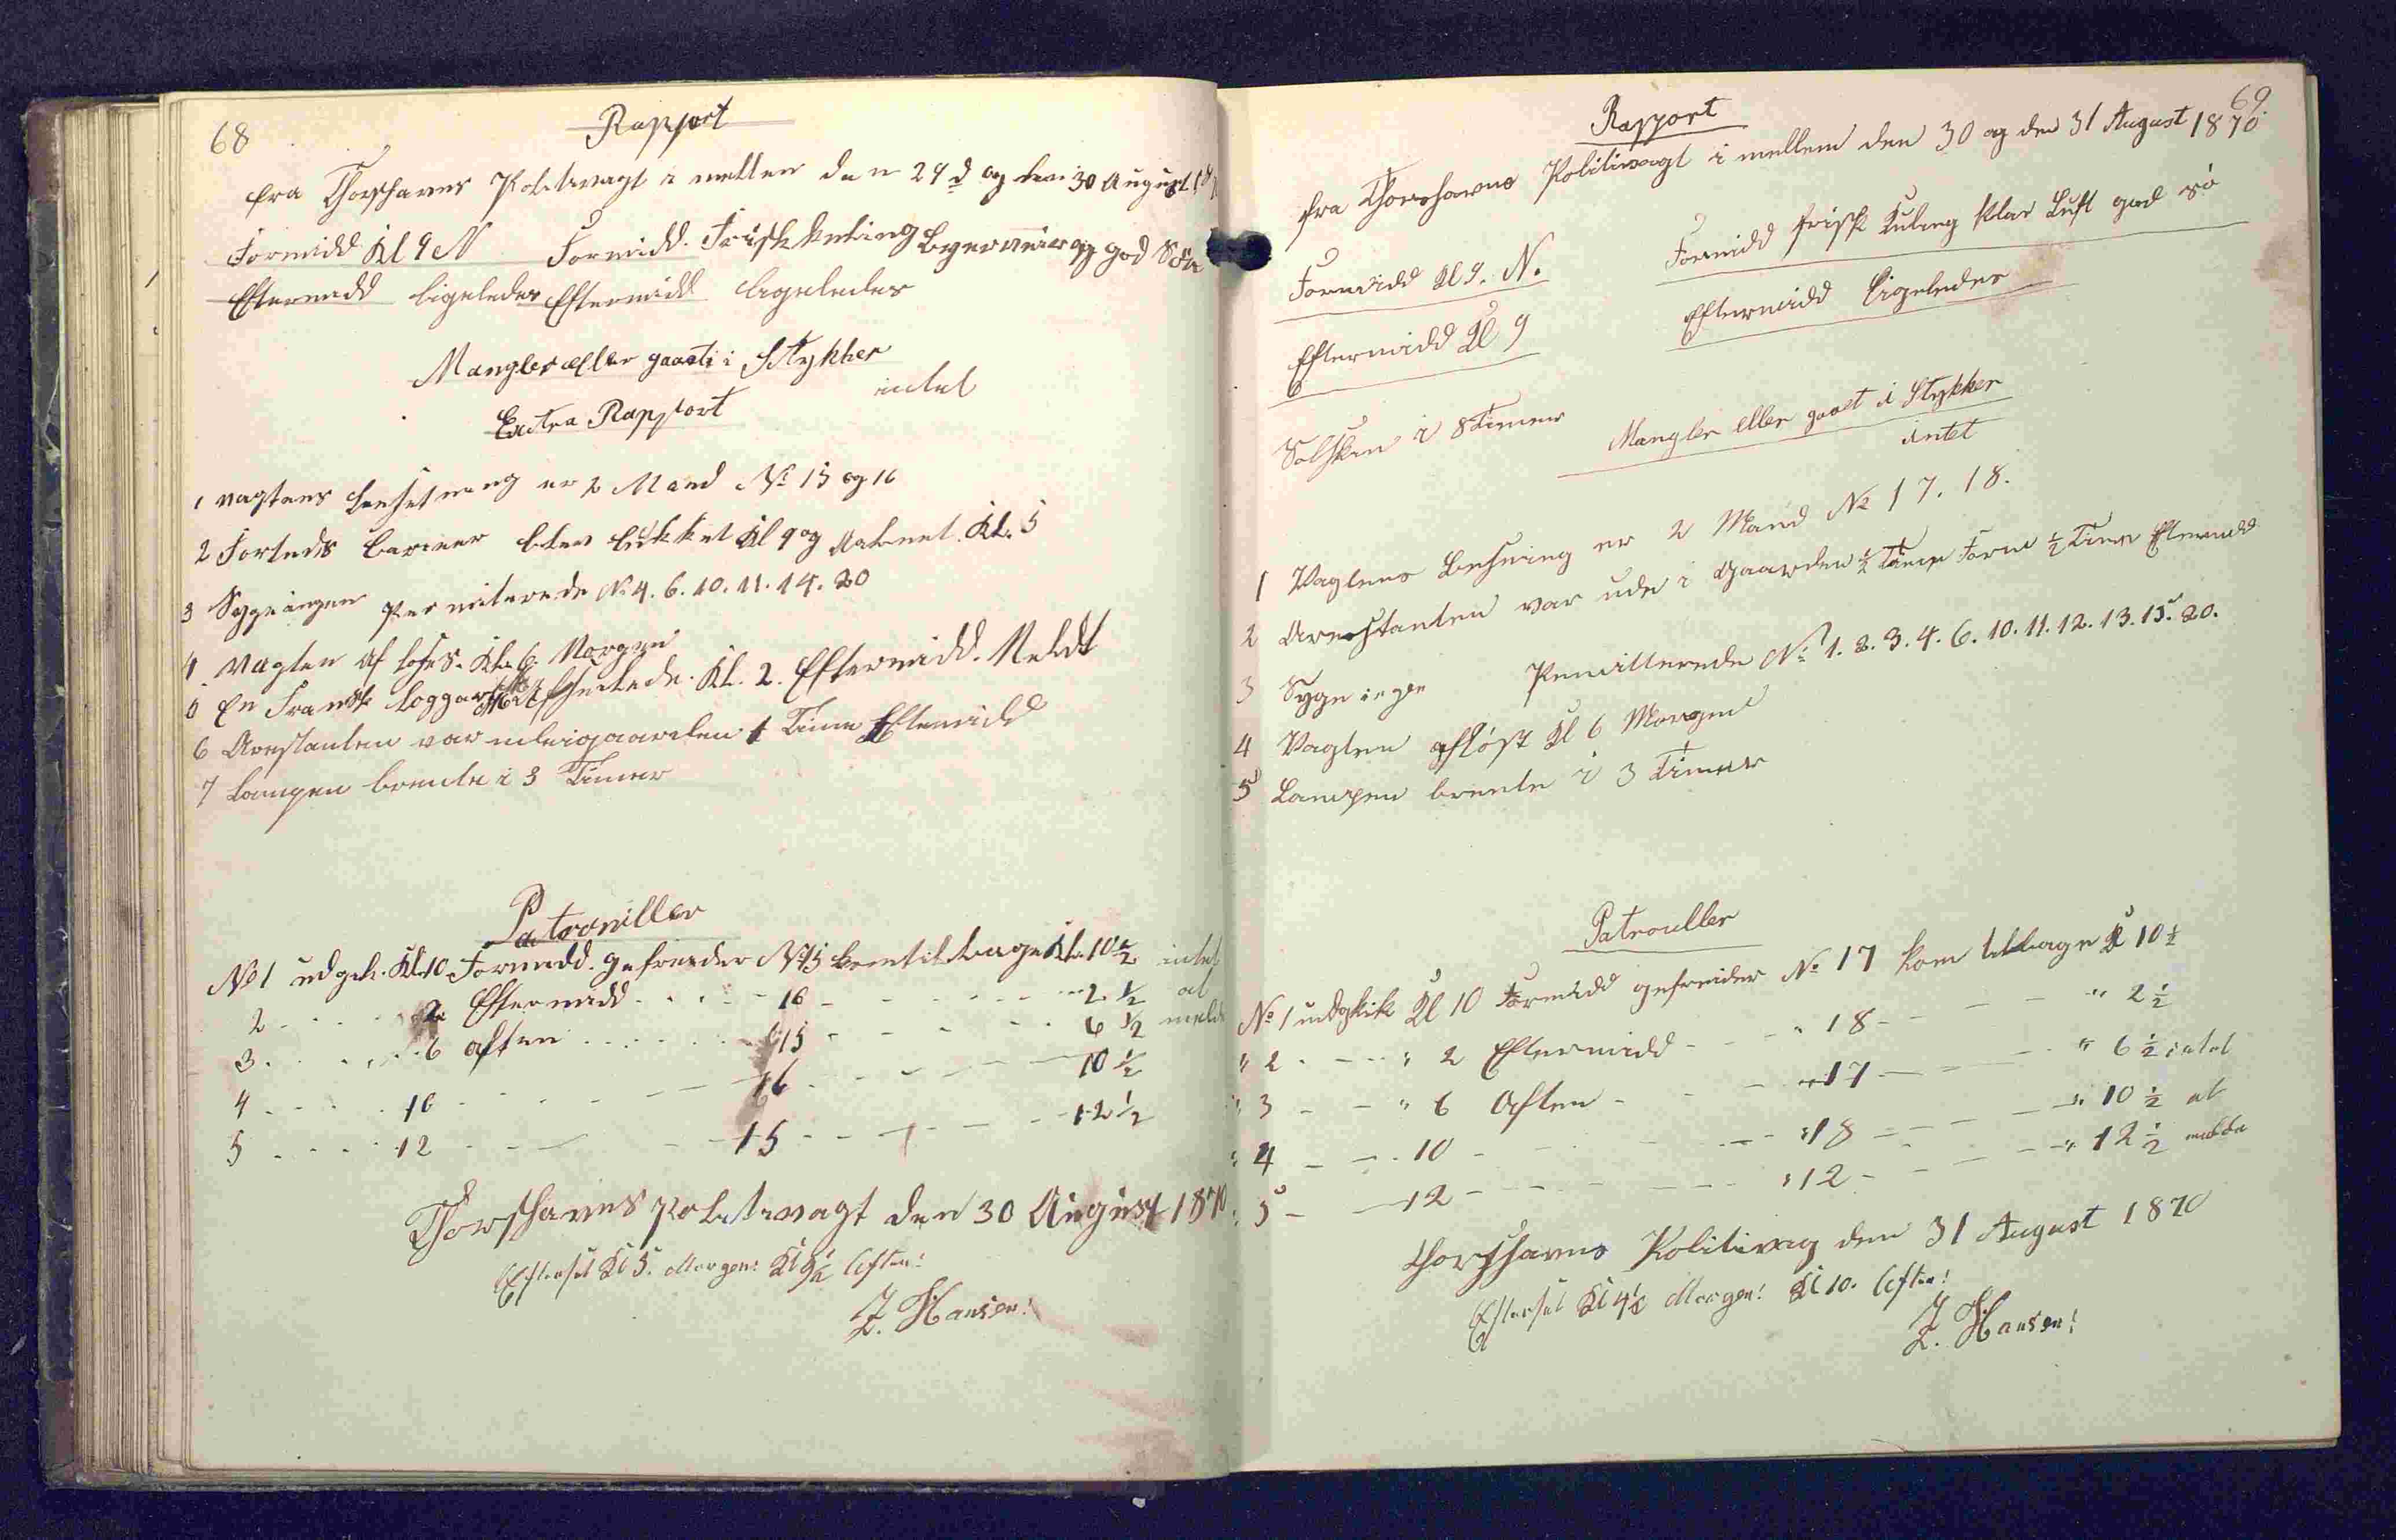 68
Rapport
fra Thorshavns Politivagt i mellem den 29d og den 30 August 18
Formidd Kl 9 N Formidd. Frisk kuling Byerveir og god Sön
Eftermidd ligeledes Eftermidd ligeledes
Mangler eller gaaet i Stykker
intet
Extra Rapport
1 Vagtens besetning er 2 Mand No 15 og 16
2 Fortets barieer blev lukket Kl 9 og Aabnet. Kl. 5
3 Syge ingen Permiterede No 4. 6. 10. 11. 14. 20
4 Vagten Af løses. Kl. 6. Morgen
5 En Fransk Loggart Kl. 2. Eftermidd. Meldt
6 Arestanten var ude i gaarden 1 Time Eftermidd
7 Lampen brende i 3 Timer
Patrouiller
No 1 udgik. Kl. 10 Formidd. gefreider No 15 kom tilbage Kl. 10 1/2 intet
2 - - - 2 Eftermidd - - - 16 - - - 2 1/2 at
3 - - - 6 Aften - - - 15 - - - 6 1/2 melde
4 - - - 10 - - - 16 - - - 10 1/2
5 - - - 12 - - - 15 - - - 12 1/2
Thorshavns Politivagt den 30 August 1870
Efterset Kl 5. Morgen! Kl 9 1/2 Aften!
Z. Hansen!
69.
Rapport
fra Thorshavns Politivagt i mellem den 30 og den 31 August 1870
Formidd Kl 9. N. Formidd frisk Kuling klar Luft god Sö
Eftermidd Kl 9 Eftermidd Ligeledes
Solskin i 8 Timer
Mangler eller gaaet i Stykker
intet
1 Vagtens Besetning er 2 Mand No 17. 18.
2 Arrestanten var ude i Gaarden 1/2 Time Form 1/2 Time Eftermidd
3 Syge ingen Permitterede No 1. 2. 3. 4. 6. 10. 11. 12. 13. 15. 20.
4 Vagten afløst Kl 6 Morgen
5 Lampen brente i 3 Timer
Patrouller
No 1 udgkik Kl 10 Formidd gefreider No 17 kom tilbage Kl 10 1/2
" 2 - - - " 2 Eftermidd - - " 18 - - - " 2 1/2
" 3 - - " 6 Aften - - - " 17 - - - " 6 1/2 intet
" 4 - - - 10 - - - " 18 - - - " 10 1/2 at
" 5 - - 12 - - - " 12 - - - " 12 1/2 melde
Thorshavns Politivag den 31 August 1870
Efterset Kl 4 1/2 Morgen! Kl 10. Aften!
Z. Hansen!